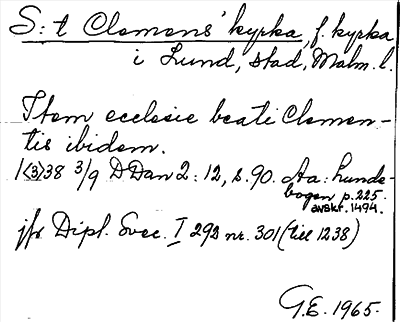 S:t Clemens' kyrka, f. kyrka
i Lund, stad, Malm. l.
Item ecclesie beati Clemen-
tis ibidem.
1(3)38 3/9 DDan 2:12, s. 90. Aa: Lunde-
bogen p. 225.
avskr. 1494.
jfr Dipl. Svec. I 292 nr. 301 (till 1238)
G.E. 1965.